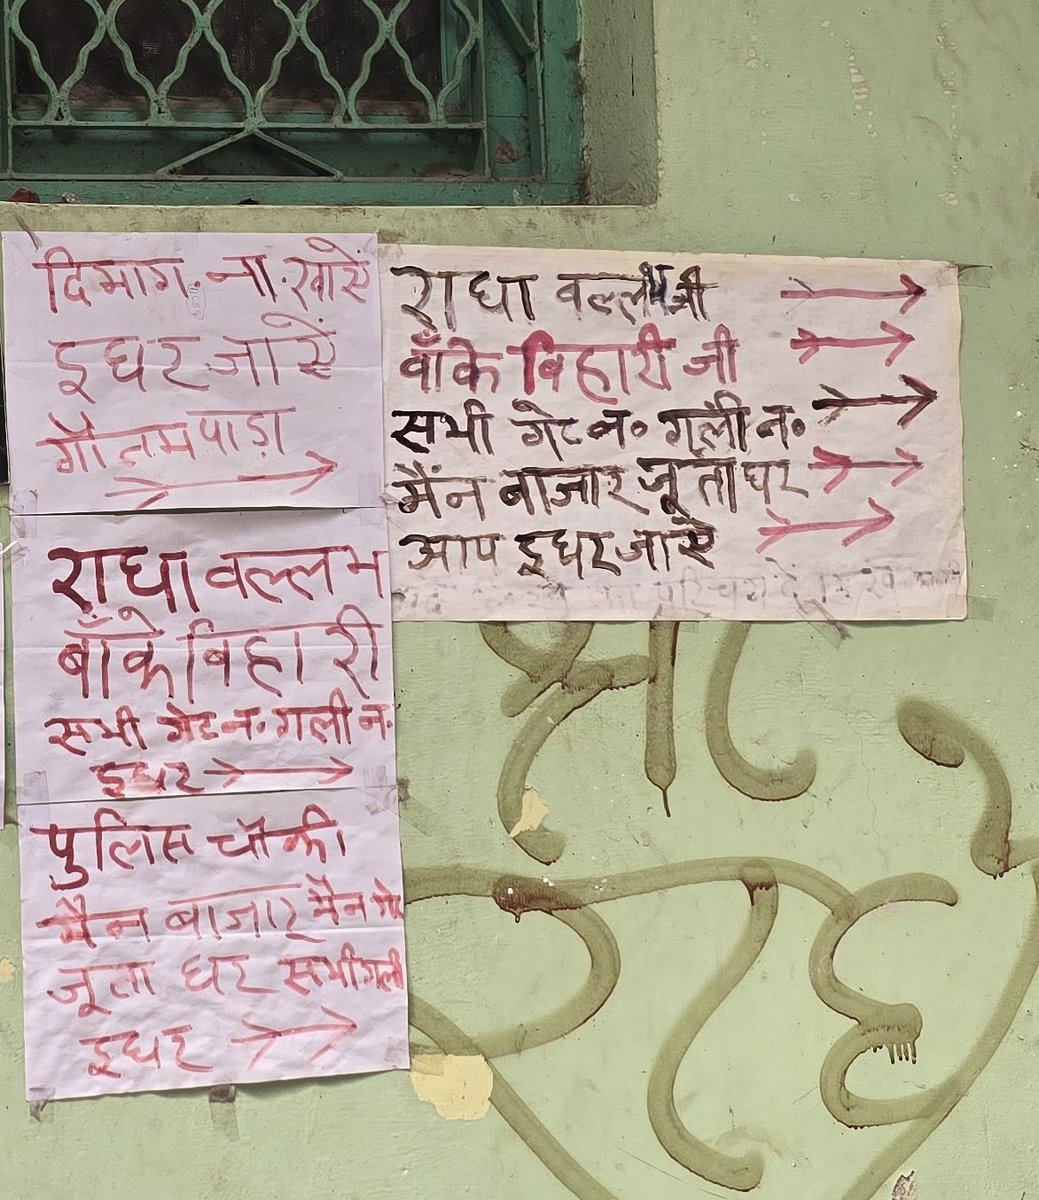 दिमाग ना खायें
इधर जायें
गौतमपाडा
राधावल्लभ
बाँकेबिहारी
सभी गेट न॰ गली न॰
इधर
पुलिस चौकी
मैन बाजार मैन गेट
जूता घर सभी गली
इधर
राधा वल्लभ जी
बाँके बिहारी जी
सभी गेट न॰ गली न॰
मैंन बाजार जूता घर
आप इधर जायें